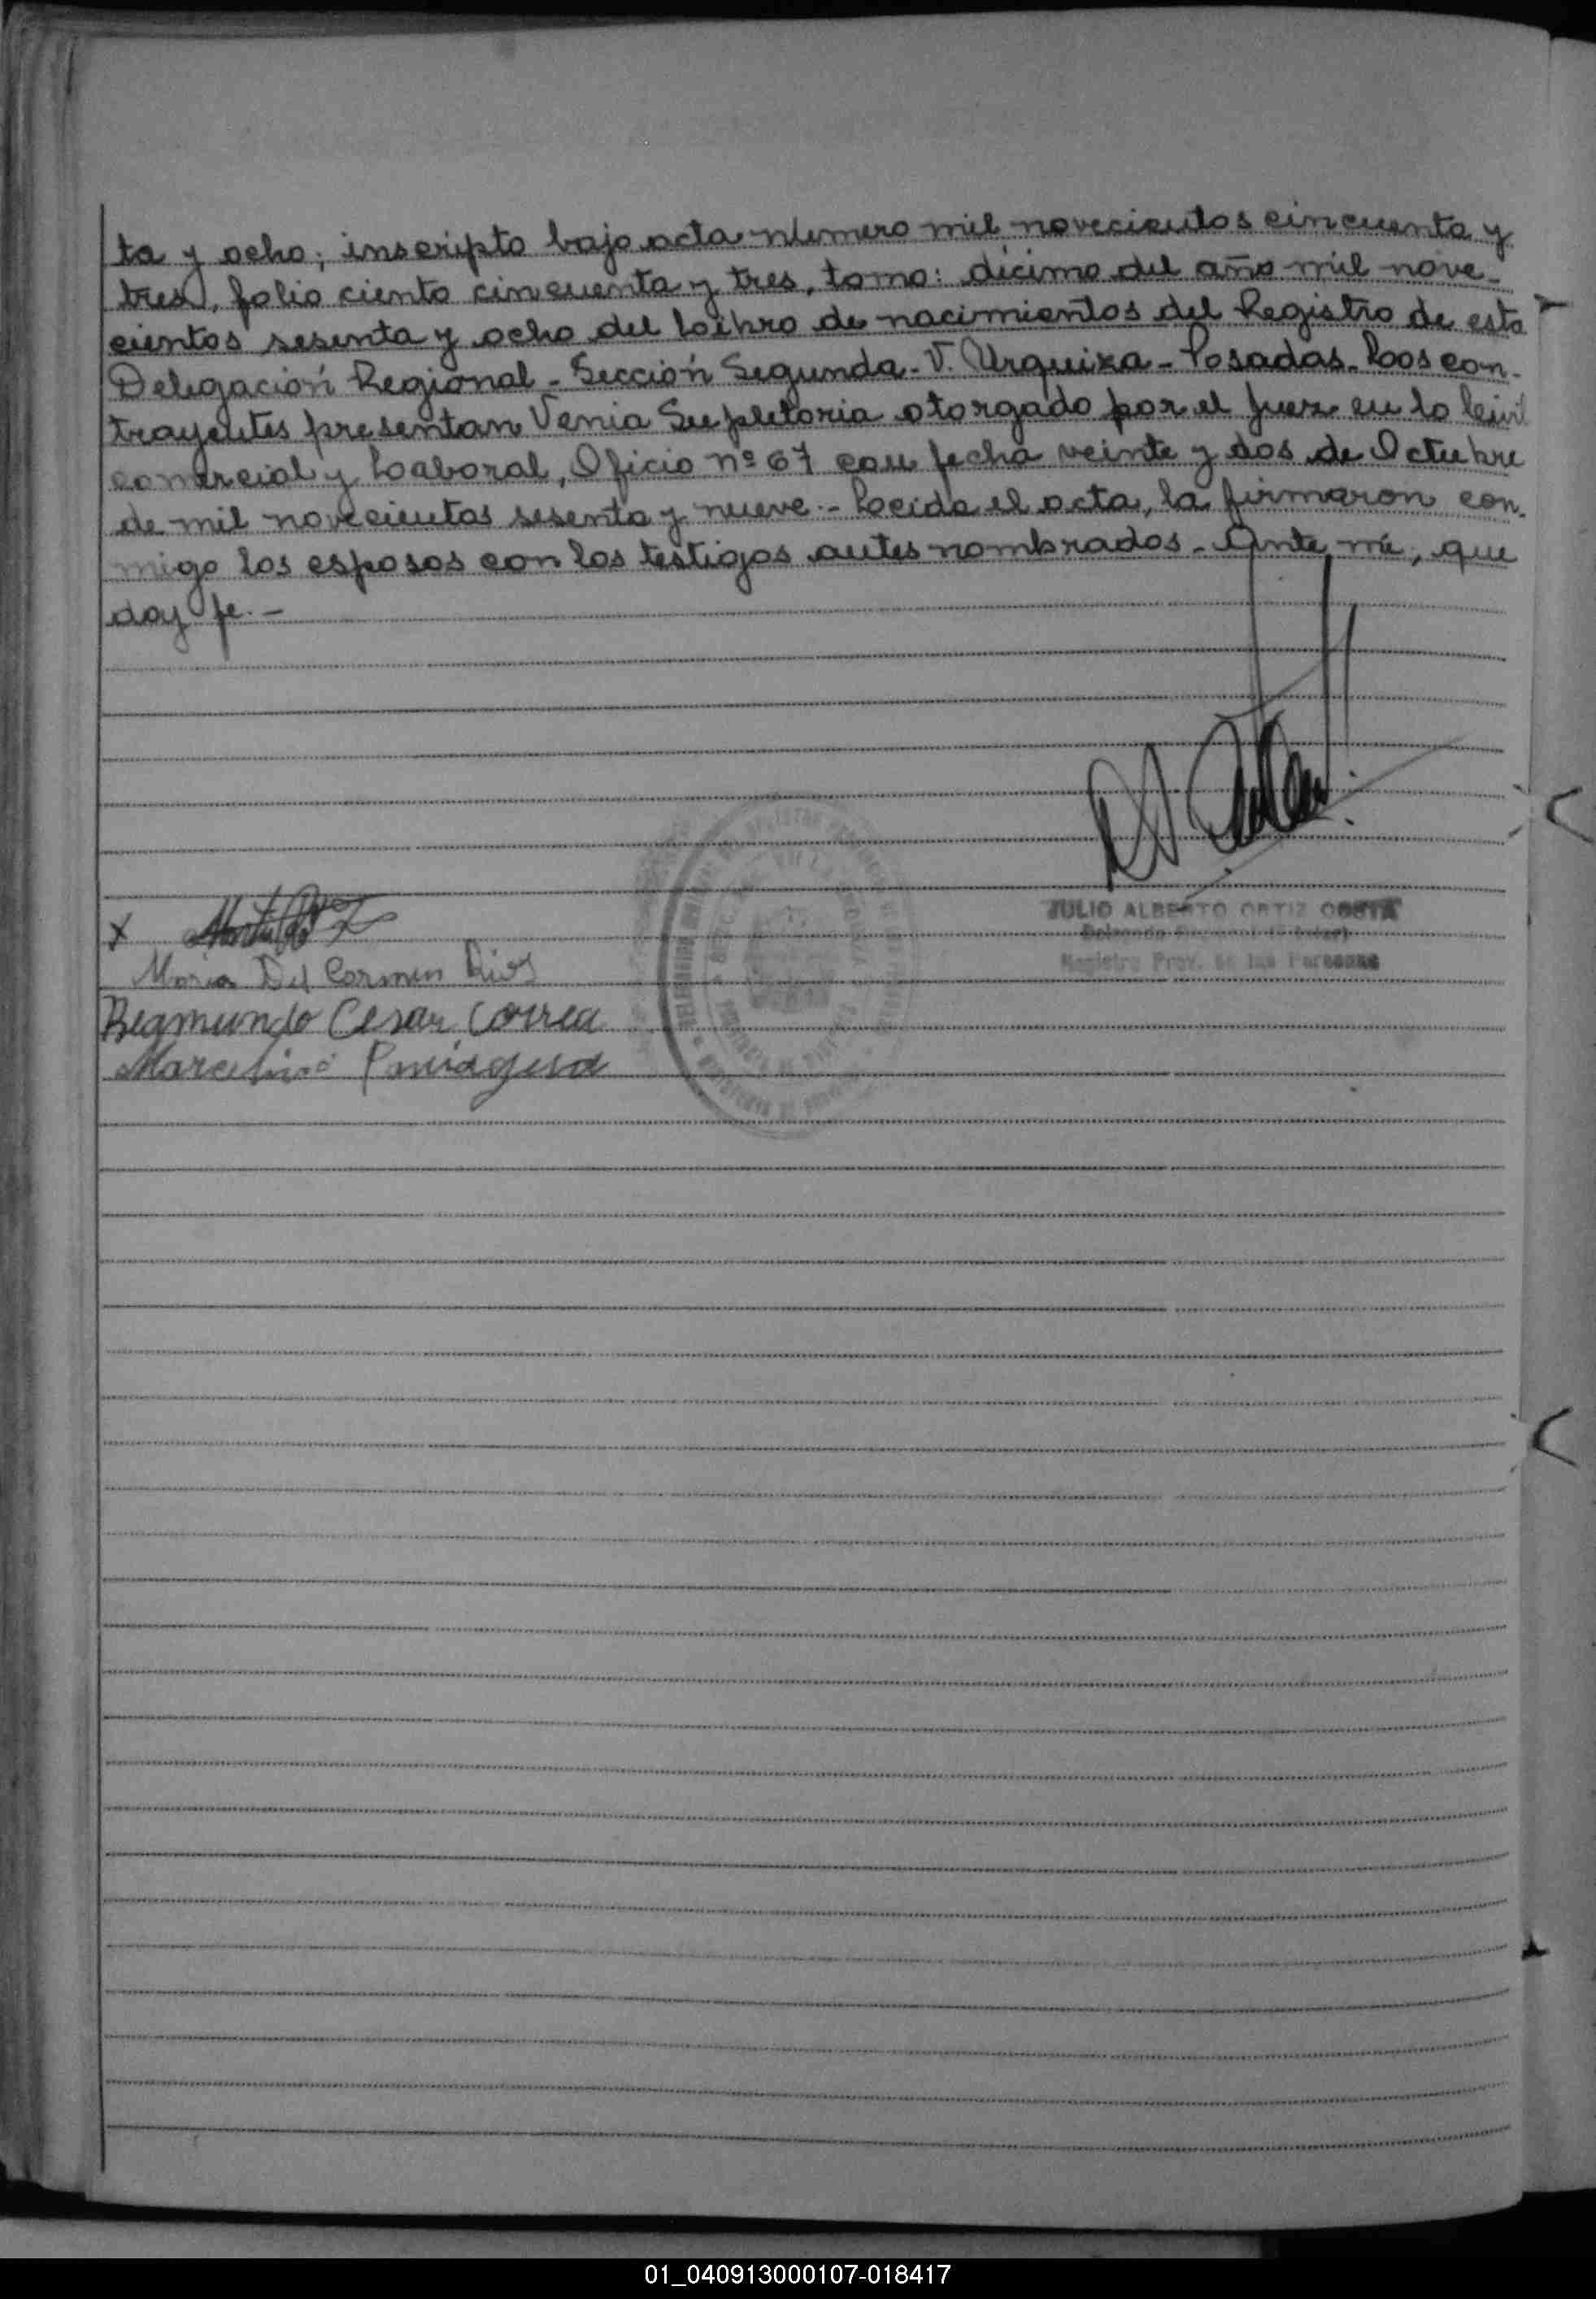 ta y ocho; inscripto bajo acta número mil novecientos cincuenta y
tres, folio ciento cincuenta y tres, tomo: décimo del año mil nove-
cientos sesenta y ocho del Libro de nacimientos del Registro de esta
Delegación Regional - Sección Segunda - V. Urquiza - Posadas. Los con-
trayentes presentan Venia Supletoria otorgado por el Juez en lo Civil
comercial y Laboral, Oficio nº 67 con fecha veinte y dos de Octubre
de mil novecientos sesenta y nueve.- Leída el acta, la firmaron con-
migo los esposos con los testigos antes nombrados - Ante mí, que
doy fe.-
JULIO ALBERTO ORTIZ COSTA
Registro Prov. de las Personas
X
Maria Del Carmen Rios
Regmundo Cesar Correa
Marcelino Paniagua
01_040913000107-018417